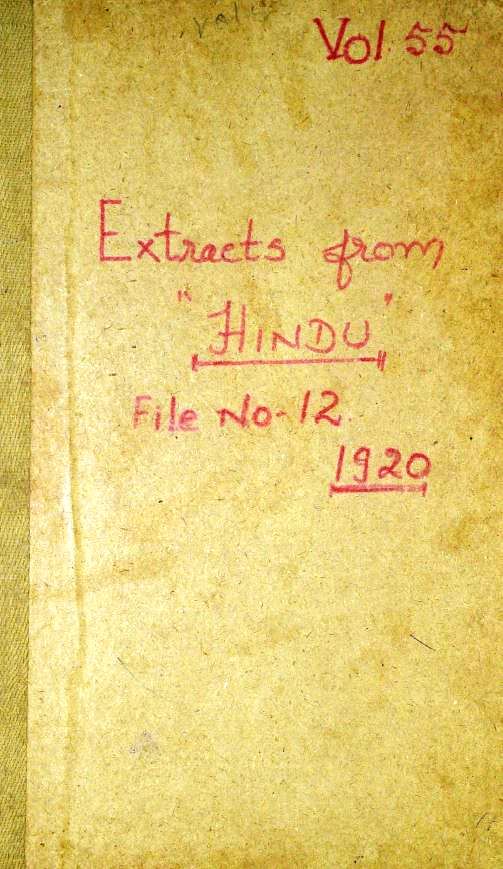 Vol 55
Extracts from
"HINDU"
File No-12
1920